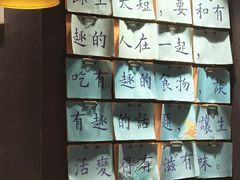 生太短，要和有
趣的人在一起，
吃有趣的食物，談
有趣的話題，讓生
活變得有滋有味。